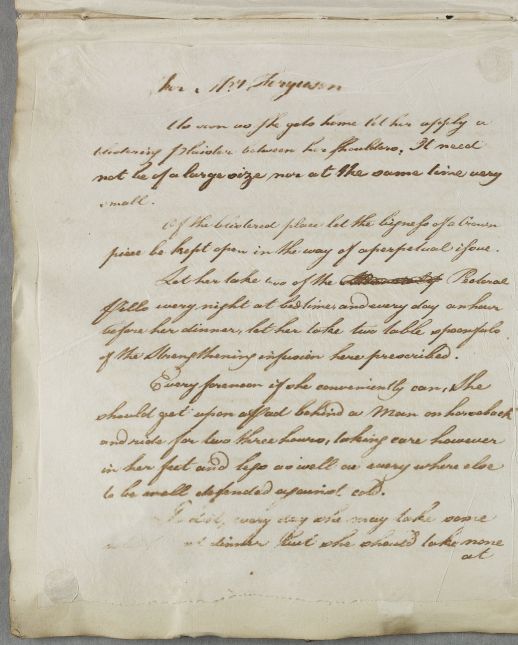 For Mrs Ferguson
As soon as she gets home let her apply a
blistering plaister between her shoulders; It need
not be of a large size nor at the same time very
small.
Of the blistered place let the bigness of a Crown
piece be kept open in the way of a perpetual issue.
Let her take two of the Pectoral
pills every night at bedtime, and every day an hour
before her dinner, let her take two table spoonfuls
of the Strengthening infusion here prescribed.
Every forenoon if she conveniently can, She
should get upon a Pad behind a Man on horseback
and ride for two three hours, taking care however
in her feet and legs as well as every where else
to be well defended against cold.
every day she may take some
at dinner but she should take none
at